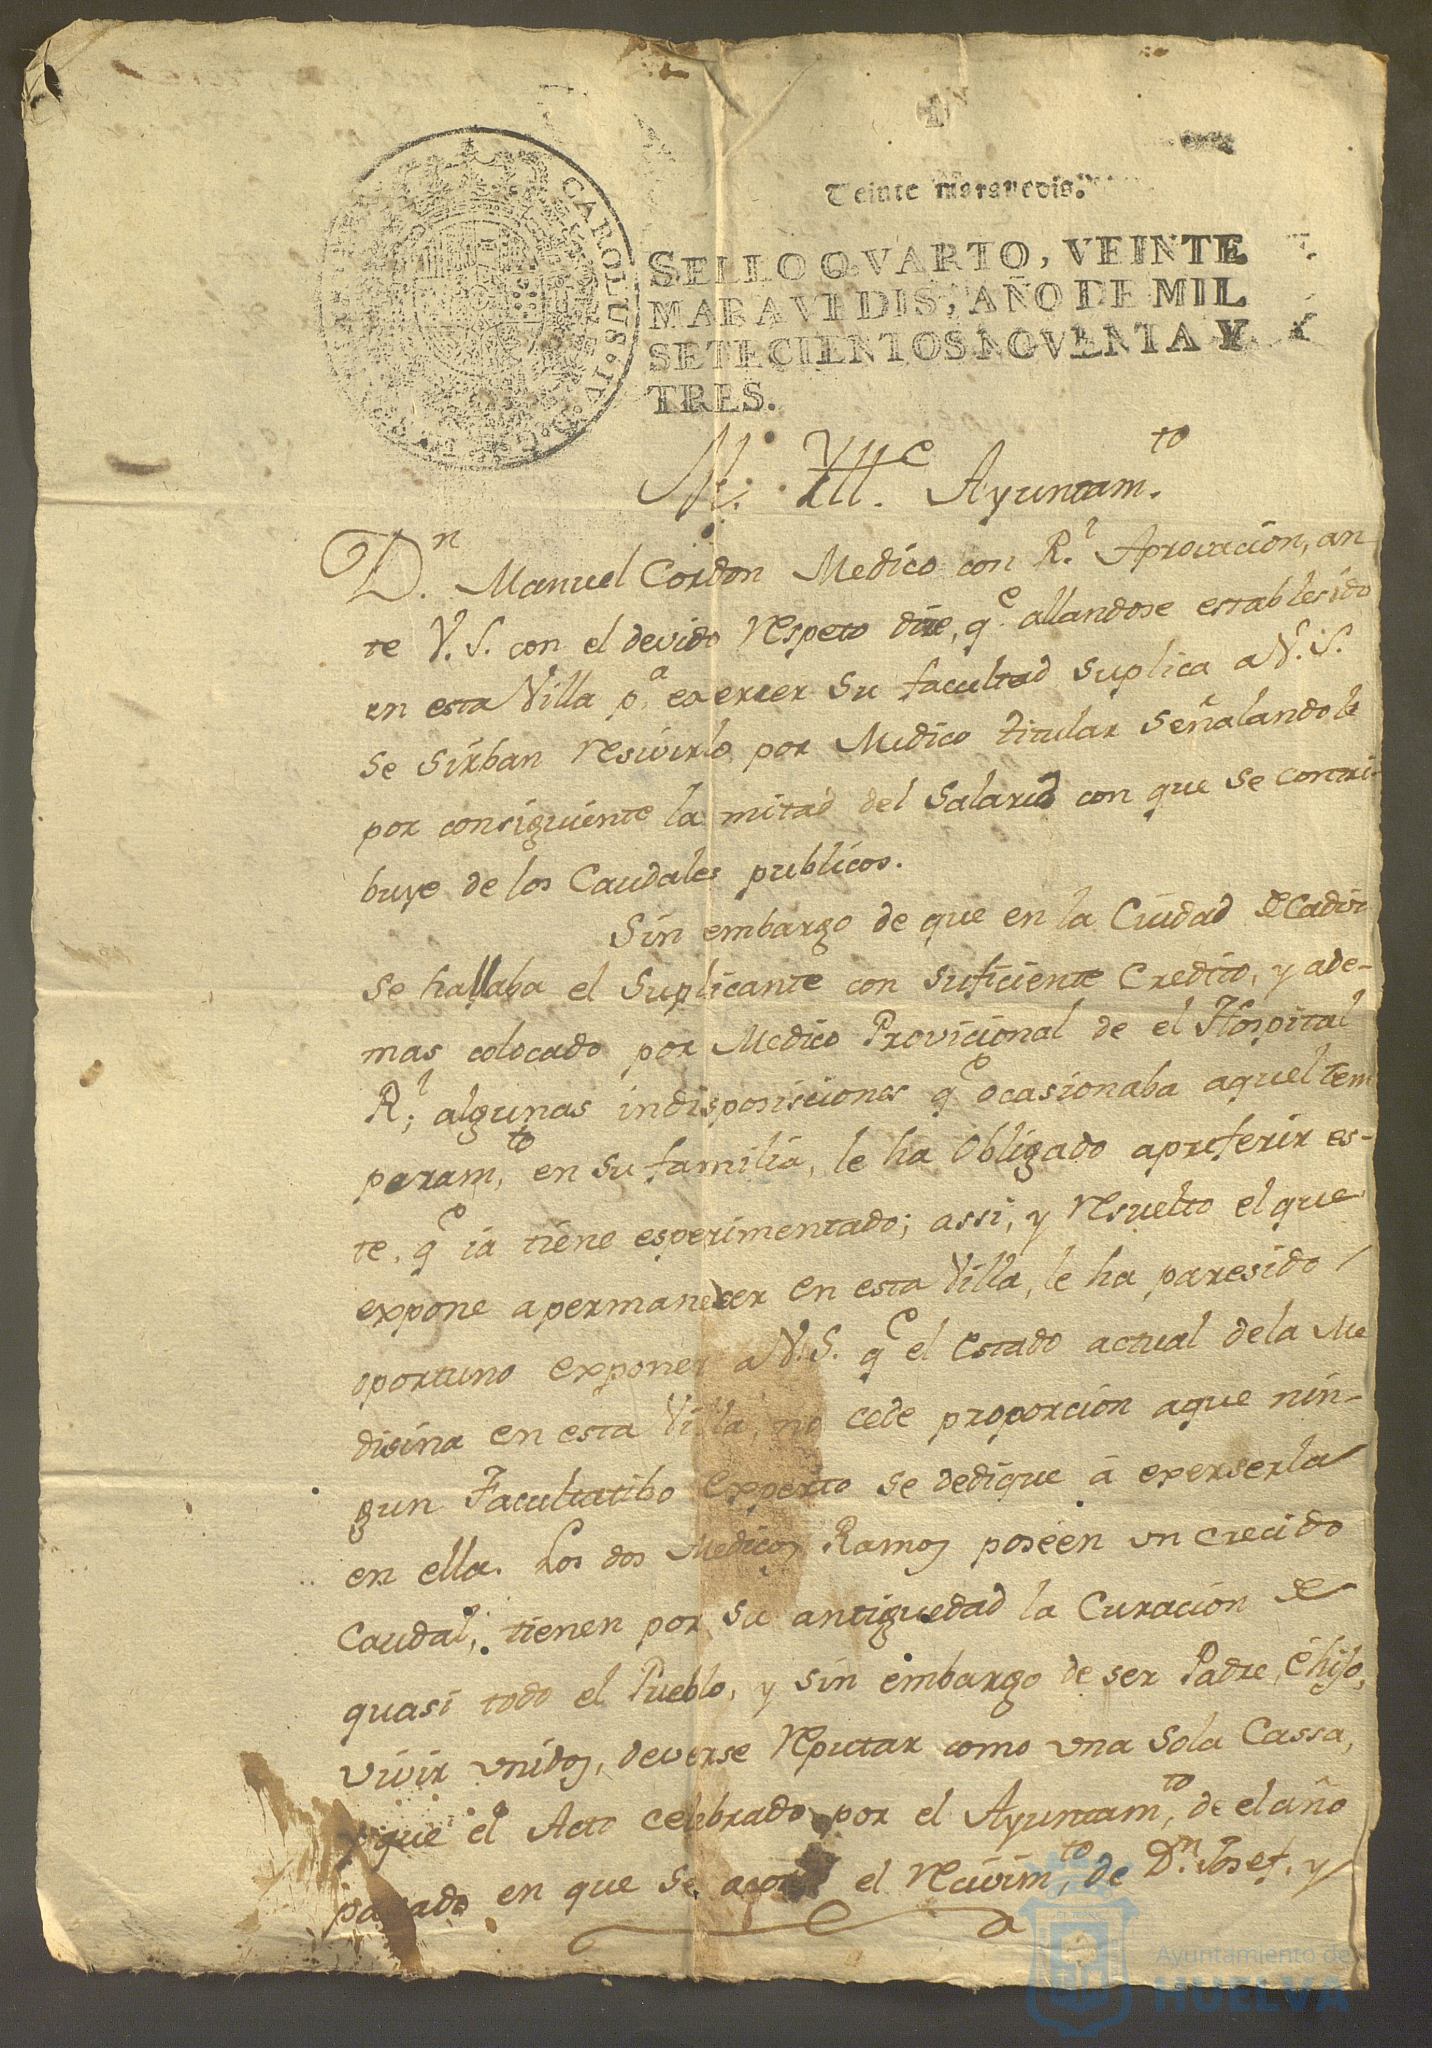 Veinte maravedis.
CAROLUS. IV. D. G.
SELLO QVARTO, VEINTE
MARAVEDIS, AÑO DE MIL
SETECIENTOS NOVENTA Y
TRES.
M. Yll.e Ayuntam.to
D.n Manuel Cordon Medico con R.l Aprovacion, an
te V. S. con el devido respeto dice, q.e allandose establesido
en esta Villa p.a exercer su facultad suplica a V. S.
se sirban resivirlo por Medico titular señalandole
por consiguiente la mitad del Salario con que se contri-
buye de los Caudales publicos.
Sin embargo de que en la Ciudad de Cadiz
se hallaba el Suplicante con suficiente Credito, y ade-
mas colocado por Medico Provicional de el Hospital
R.l; algunas indisposisiones q.e ocasionaba aquel tem
peram.to en su familia, le ha obligado a preferir es-
te, q.e ia tiene esperimentado; assi, y resuelto el que
expone a permanecer en esta Villa, le ha paresido
oportuno exponer a V. S. q.e el estado actual de la Me
disina en esta Villa, no cede proporcion a que nin-
gun Facultatibo experto se dedique á exerserla
en ella. Los dos Medicos Ramos poséen un crecido
Caudal, tienen por su antiguedad la Curacion de
quasi todo el Pueblo, y sin embargo de ser Padre, é hijo,
vivir unidos, deverse reputar como una sola Cassa,
y que el Acto celebrado por el Ayuntam.to de el año
pasado en que se acordó el recivim.to de D.n Josef, y
Ayuntamiento de
HUELVA